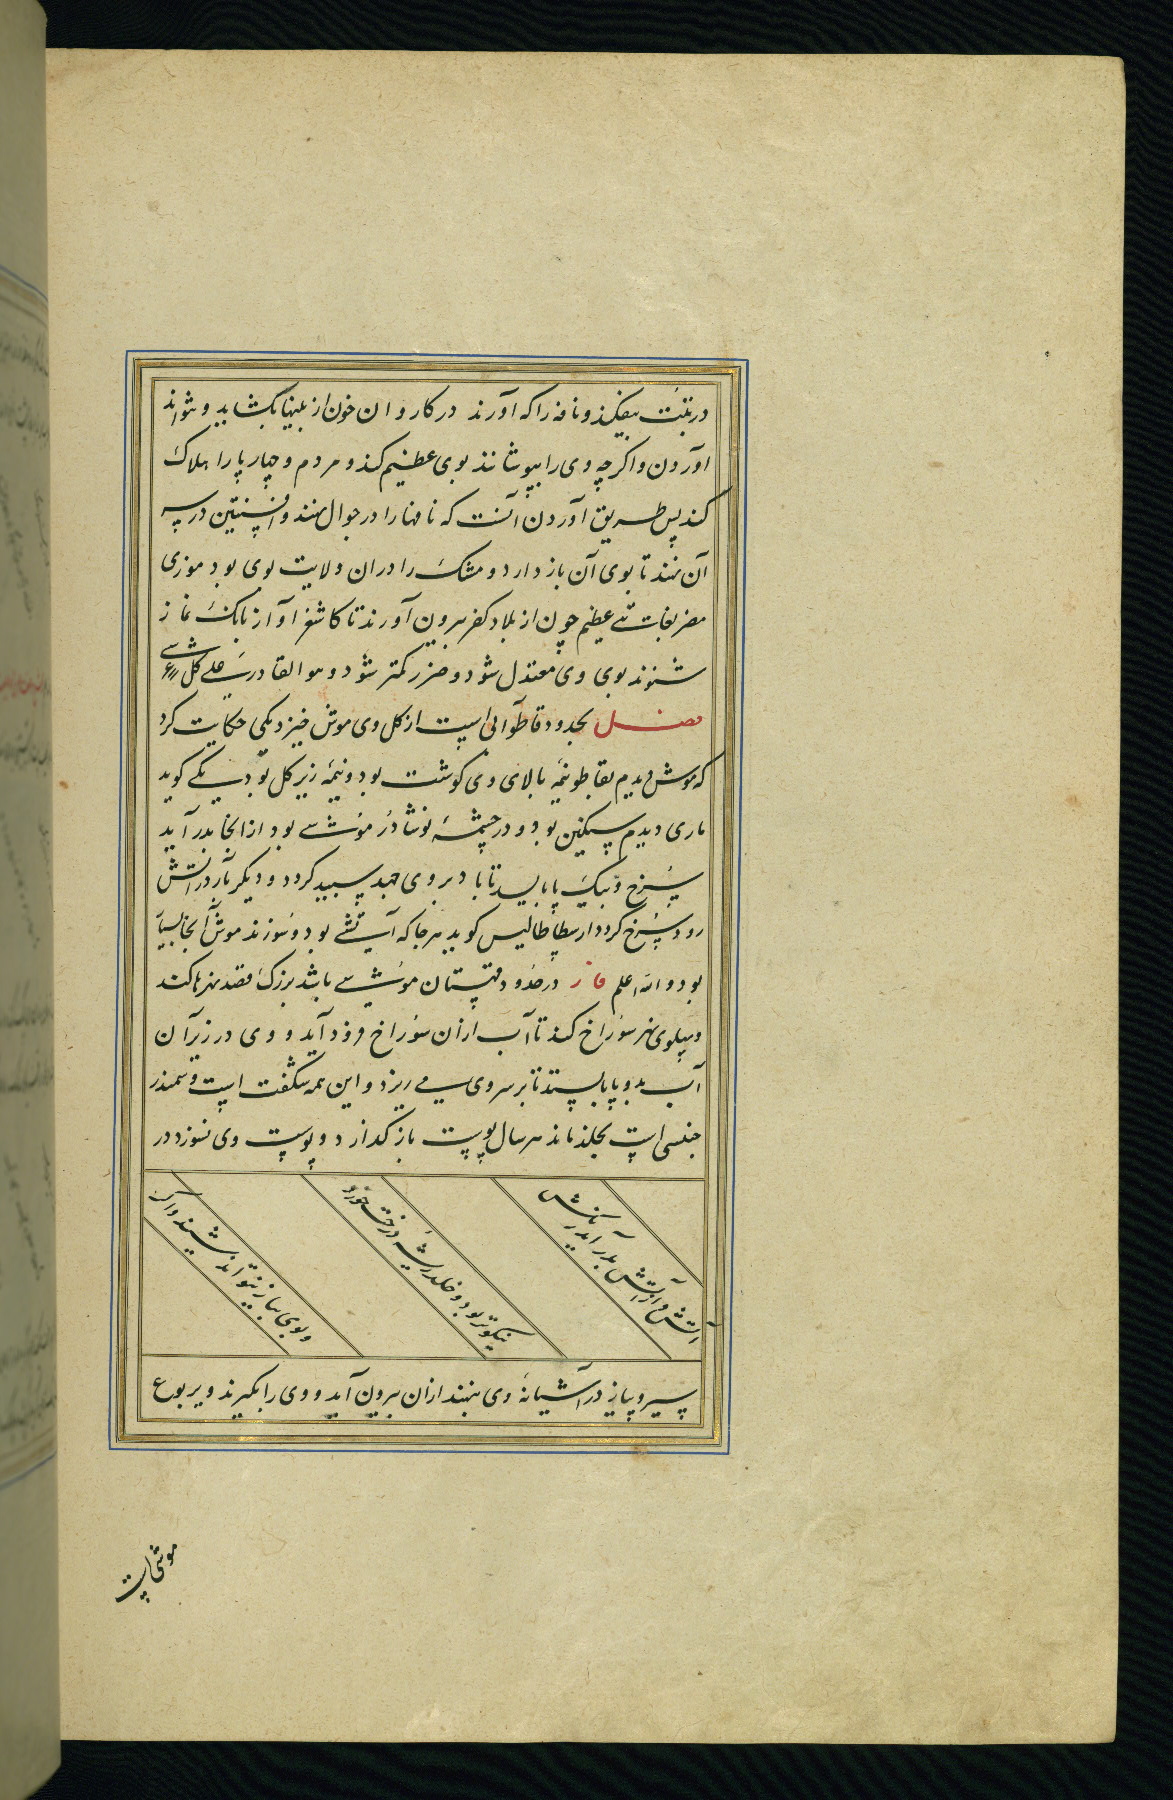 در تبت بیفکند و نافه را که آورند در کاروان خون از بینیها بکشاید و نتواند
آوردن و اگر چه وی را بپوشانند بوی عظیم کند و مردم و چهارپا را هلاک
کند پس طریق آوردن آنست که نافها را در جوال نهند و افسنتین در پس
آن نهند تا بوی آن باز دارد و مشک را در ان ولایت بوی بود موزی
مضر بغایت عظیم چون از بلاد کفر بیرون آورند تا کاشغر آواز بانک نماز
شنوند بوی وی معتدل شود و ضرر کمتر شود و هو القادر علی کل شی
فصل بحدود قاطو آبی است از کل وی موش خیزد یکی حکایت کرد
که موش دیدم بقاطو نیمه بالای وی کوشت بود و نیمه زیر کل بود یکی کوید
ماری دیدم سنکین بود و در چشمه نوشادر موشی بود از انجا بدر آید
سرخ و نیک پا بایستد تا باد بر وی جهد سپید کردد و دیکر بار در آتش
رود سرخ کردد ارسطاطالیس کوید هر جا که آتشی بود و سوزند موش آنجا بسیار
بود والله اعلم فار در حدود قهستان موشی باشد بزرک قصد نهرها کند
و پهلوی نهر سوراخ کند تا آب از ان سوراخ فرود آید و وی در زیر آن
آب بدو پا بایستد تا بر سر وی می ریزد و این همه شکفت است و سمندر
جنسی است بخلد ماند هر سال پوست باز کدارد و پوست وی نسوزد در
آتش و از آتش بدر آید رنکش
نیکوتر بود و خلد ریشه درخت خورد
و بوی پیاز نتواند شنید و اکر
سیر و پیاز در آشیانه وی نهند از ان بیرون آید و وی را بکیرند و یربوع
موشی است